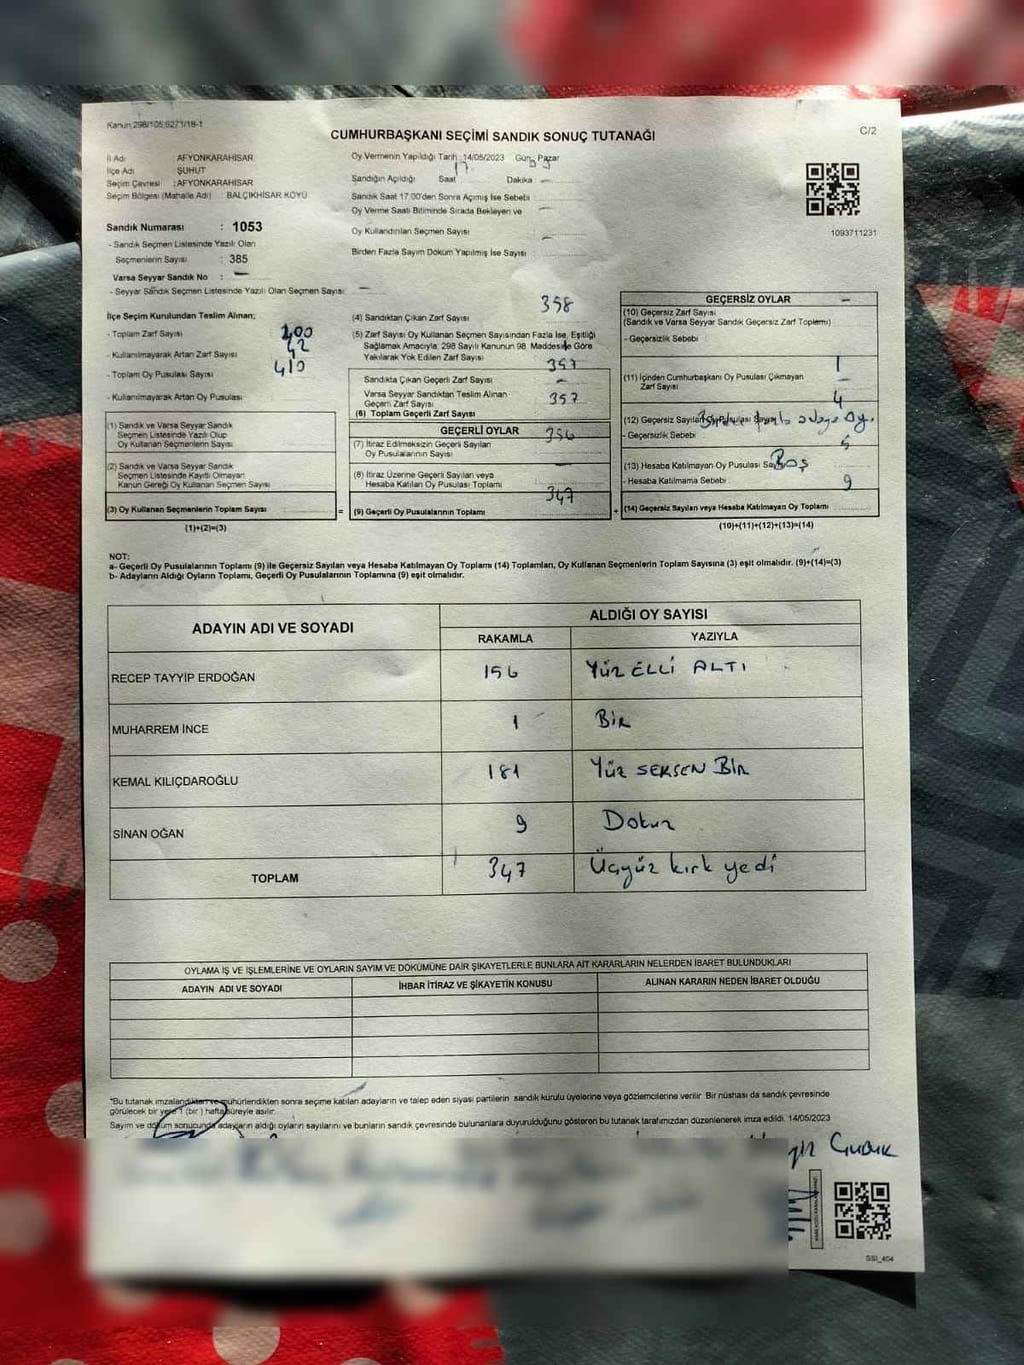 Kanun 298/105,6271/18-1
CUMHURBAŞKANI SEÇİMİ SANDIK SONUÇ TUTANAĞI
C/2
İl Adı : AFYONKARAHİSAR
İlçe Adı : ŞUHUT
Seçim Çevresi : AFYONKARAHİSAR
Seçim Bölgesi (Mahalle Adı) : BALÇIKHİSAR KÖYÜ
Oy Vermenin Yapıldığı Tarih: 14/05/2023 Gün: Pazar
Sandığın Açıldığı Saat 17 Dakika: —
Sandık Saat 17.00'den Sonra Açmış İse Sebebi :
Oy Verme Saati Bitiminde Sırada Bekleyen ve
Oy Kullandırılan Seçmen Sayısı
Birden Fazla Sayım Döküm Yapılmış İse Sayısı
1093711231
Sandık Numarası : 1053
- Sandık Seçmen Listesinde Yazılı Olan
Seçmenlerin Sayısı : 385
Varsa Seyyar Sandık No : —
- Seyyar Sandık Seçmen Listesinde Yazılı Olan Seçmen Sayısı: —
İlçe Seçim Kurulundan Teslim Alınan;
- Toplam Zarf Sayısı 400
- Kullanılmayarak Artan Zarf Sayısı 42
- Toplam Oy Pusulası Sayısı 410
- Kullanılmayarak Artan Oy Pusulası
(1) Sandık ve Varsa Seyyar Sandık
Seçmen Listesinde Yazılı Olup
Oy Kullanan Seçmenlerin Sayısı
(2) Sandık ve Varsa Seyyar Sandık
Seçmen Listesinde Kayıtlı Olmayan
Kanun Gereği Oy Kullanan Seçmen Sayısı
(3) Oy Kullanan Seçmenlerin Toplam Sayısı
(1)+(2)=(3)
358
(4) Sandıktan Çıkan Zarf Sayısı
(5) Zarf Sayısı Oy Kullanan Seçmen Sayısından Fazla İse, Eşitliği
Sağlamak Amacıyla, 298 Sayılı Kanunun 98. Maddesine Göre
Yakılarak Yok Edilen Zarf Sayısı
357
Sandıkta Çıkan Geçerli Zarf Sayısı —
Varsa Seyyar Sandıktan Teslim Alınan
Geçerli Zarf Sayısı 357
(6) Toplam Geçerli Zarf Sayısı
GEÇERLİ OYLAR
356
(7) İtiraz Edilmeksizin Geçerli Sayılan
Oy Pusulalarının Sayısı
—
(8) İtiraz Üzerine Geçerli Sayılan veya
Hesaba Katılan Oy Pusulası Toplamı
347
(9) Geçerli Oy Pusulalarının Toplamı
GEÇERSİZ OYLAR —
(10) Geçersiz Zarf Sayısı
(Sandık ve Varsa Seyyar Sandık Geçersiz Zarf Toplamı)
- Geçersizlik Sebebi
1
(11) İçinden Cumhurbaşkanı Oy Pusulası Çıkmayan
Zarf Sayısı —
4
(12) Geçersiz Sayılan Oy Pusulası Sayısı
- Geçersizlik Sebebi 5
(13) Hesaba Katılmayan Oy Pusulası Sayısı Boş
- Hesaba Katılmama Sebebi 9
(14) Geçersiz Sayılan veya Hesaba Katılmayan Oy Toplamı
(10)+(11)+(12)+(13)=(14)
NOT:
a- Geçerli Oy Pusulalarının Toplamı (9) ile Geçersiz Sayılan veya Hesaba Katılmayan Oy Toplamı (14) Toplamları, Oy Kullanan Seçmenlerin Toplam Sayısına (3) eşit olmalıdır. (9)+(14)=(3)
b- Adayların Aldığı Oyların Toplamı, Geçerli Oy Pusulalarının Toplamına (9) eşit olmalıdır.
ADAYIN ADI VE SOYADI
ALDIĞI OY SAYISI
RAKAMLA YAZIYLA
RECEP TAYYİP ERDOĞAN 156 YÜZ ELLİ ALTI
MUHARREM İNCE 1 BİR
KEMAL KILIÇDAROĞLU 181 YÜZ SEKSEN BİR
SİNAN OĞAN 9 Dokuz
TOPLAM 347 Üçyüz kırk yedi
OYLAMA İŞ VE İŞLEMLERİNE VE OYLARIN SAYIM VE DÖKÜMÜNE DAİR ŞİKAYETLERLE BUNLARA AİT KARARLARIN NELERDEN İBARET BULUNDUKLARI
ADAYIN ADI VE SOYADI İHBAR İTİRAZ VE ŞİKAYETİN KONUSU ALINAN KARARIN NEDEN İBARET OLDUĞU
*Bu tutanak imzalandıktan ve mühürlendikten sonra seçime katılan adayların ve talep eden siyasi partilerin sandık kurulu üyelerine veya gözlemcilerine verilir. Bir nüshası da sandık çevresinde
görülecek bir yere 1 (bir) hafta süreyle asılır.
Sayım ve döküm sonucunda adayların aldığı oyların sayılarını ve bunların sandık çevresinde bulunanlara duyurulduğunu gösteren bu tutanak tarafımızdan düzenlenerek imza edildi. 14/05/2023
SSI_404